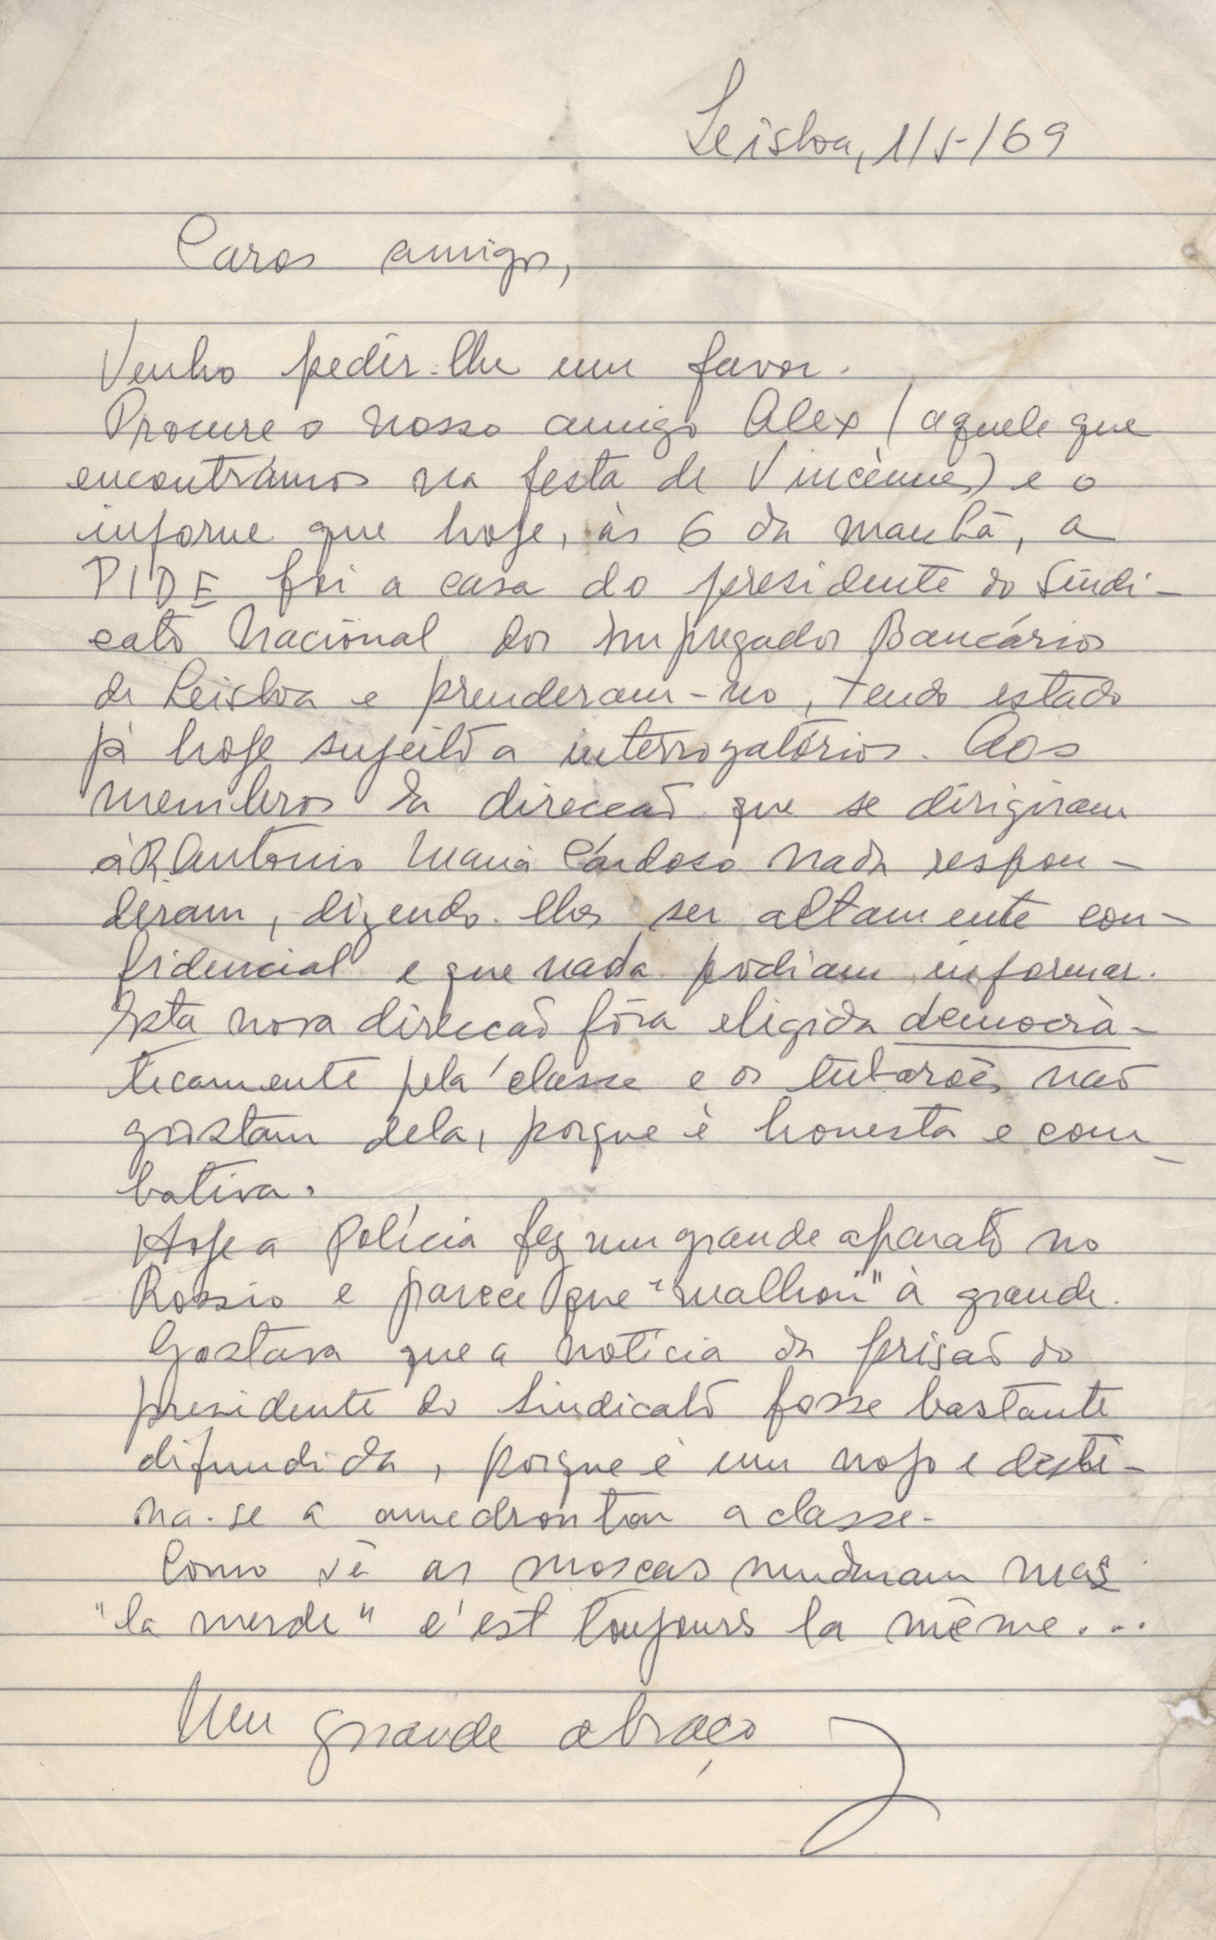 Lisboa, 1/5/69
Caros amigos,
Venho pedir-lhe um favor.
Procure o nosso amigo Alex (aquele que
encontrámos na festa de Vincènnes) e o
informe que hoje, às 6 da manhã, a
PIDE foi a casa do presidente do Sindi-
cato Nacional dos Empregados Bancários
de Lisboa e prenderam-no, tendo estado
já hoje sujeito a interrogatórios. Aos
membros da direcção que se dirigiram
à R. António Maria Cardoso nada respon-
deram, dizendo-lhes ser altamente con-
fidencial e que nada podiam informar.
Esta nova direcção fôra eligida democrà-
ticamente pela classe e os tubarões não
gostam dela, porque é honesta e com-
bativa.
Hoje a Polícia fez um grande aparato no
Rossio e parece que "malhou" à grande.
Gostava que a notícia da prisão do
presidente do Sindicato fosse bastante
difundida, porque é um nojo e desti-
na-se a amedrontar a classe.
Como vê as moscas mudaram mas
"la merde" c'est toujours la même...
Um grande abraço